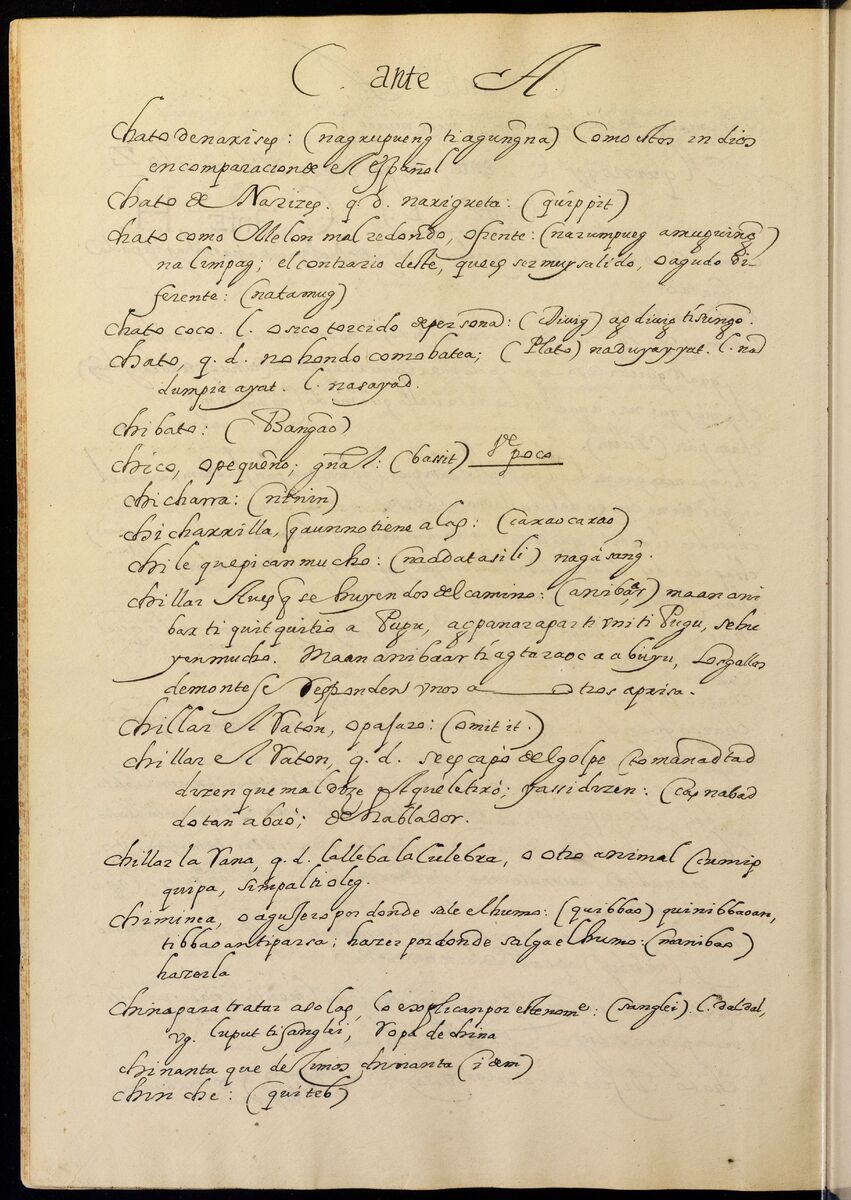 C. ante A.
chato de narises: (nagrupueng ti agungna) Como estos indios
en comparacion de el español
chato de Narizes. q. d. narigueta: (quippit)
chato como Melon mal redondo, o frente: (narumpueg
nalimpag; el contrario deste, que es ser muy salido, o agudo di-
ferente: (natamug)
chato coco. l. osico torcido de persona: (Diuig)
chato, q. d. no hondo como batea; (Plato) naduyayyat. l. na
dumpia ayat. l. nasayad.
chibato: (Bangao)
chico, o pequeño; gnal: (bassit) Ve poco
chicharra: (ritnin)
chicharrilla, q aun no tiene alas: (carao carao)
chile que pican mucho: (naddat a sili) nagasang.
chillar Aues q se huyendos del camino: (anibaar) maan ani
bar ti quitquitio a Pugu, agpanarapar ti vni ti Pugu, se hu
yen mucho. Maan anibaar ti agtaraoc a abuyu, Los gallos
de monte se responden vnos a otros aprisa.
chillar el raton, o pajaro: (omitit.)
chillar el raton, q. d. se escapò del golpe (tomanadtad
dizen que maldize Aquèletirò; y assi dizen: (cas nabad
do tan abao; de hablador.
chillar la rana, q. d. lalleba la Culebra, o otro animal (cumip
quipa, simpalti oleg.
chiminea, o agujero por donde sale el humo: (quibbao) quinibbaoan,
tibbaoan ti parsa; hazer por donde salga el humo: (manibao)
hazerla
china para tratar a solas, lo explican por este nome: (sanglei). l. daldal,
vg. luput ti sanglei, ropa de china
chinanta que dezimos chinanta (idem)
chinche: (quiteb)